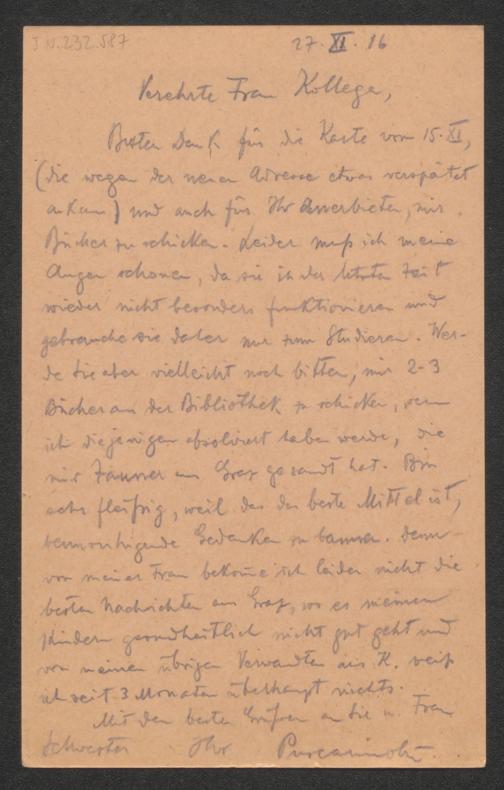 J.N. 232.587
27. XI. 16
Verehrte Frau Kollega,
Besten Dank für die Karte vom 15. XI,
(die wegen der neuen Adresse etwas verspätet
ankam) und auch für Ihr Anerbieten, mir
Bücher zu schicken. Leider muß ich meine
Augen schonen, da sie in der letzten Zeit
wieder nicht besonders funktionieren und
gebrauche sie daher nur zum Studieren. Wer-
de Sie aber vielleicht noch bitten, mir 2-3
Bücher aus der Bibliothek zu schicken, wenn
ich diejenigen absolviert haben werde, die
mir aus Graz gesandt hat. Bin
sehr fleißig, weil das das beste Mittel ist,
beunruhigende Gedanken zu bannen. Denn
von meiner Frau bekomme ich leider nicht die
besten Nachrichten aus Graz, wo es meinen
Kindern gesundheitlich nicht gut geht und
von meinen übrigen Verwandten aus K. weiß
ich seit 3 Monaten überhaupt nichts.
Mit den besten Grüßen an Sie u. Frau
Schwester Ihr